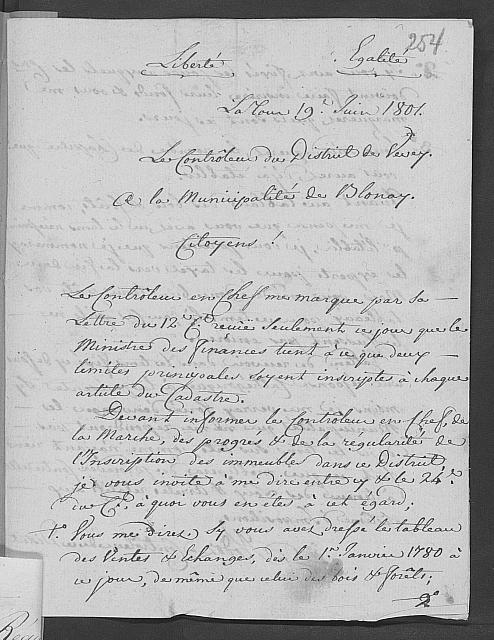 254
Liberté. Egalité
La Tour 19e. Juin 1801.
Le Contrôleur du District de Vevey.
A la Municipalité de Blonay.
Citoyens!
Le Contrôleur en Chef me marque par sa
Lettre du 12e. Ct. reçüe seulement ce jour que le
Ministre des finances tient à ce que deux
limites principales soyent inscriptes à chaque
article du Cadastre.
Devant informer le Contrôleur en Chef, de
la Marche, des progrès & de la régularité de
l'Inscription des immeubles dans ce District,
je vous invite à me dire entre cy & le 24e.
du Ct. à quoi vous en étes à cet égard;
1o. Vous me direz, sy vous avez dressé le tableau
des Ventes & Echanges, dès le 1er. Janvier 1780 à
ce jour, de même que celui des bois & forêts;
2o